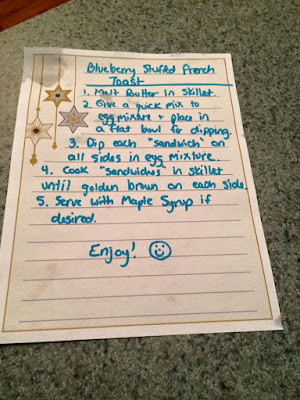 Blueberry Stuffed French
Toast
1. Melt Butter in Skillet.
2. Give a quick mix to
egg mixture + place in
a flat bowl for dipping.
3. Dip each "sandwich" on
all sides in egg mixture.
4. Cook "sandwiches" in skillet
until golden brown on each side.
5. Serve with Maple Syrup if
desired.
Enjoy! ☺